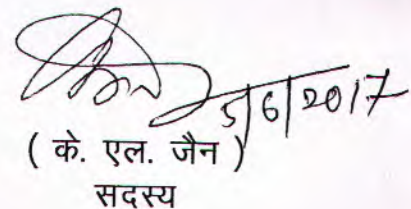 5/6/2017
( के. एल. जैन )
सदस्य